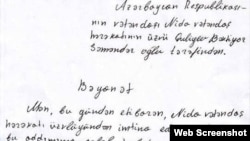 Azərbaycan Respublikası-
nın vətəndaşı Nida vətəndaş
hərəkatın üzvü Quliyev Bəxtiyar
Səməndər oğlu tərəfindən.
Bəyanat
Mən, bu gündən etibarən, Nida vətəndaş
hərəkatı üzvlüyündən imtina ed
bu addımımı
Web Screenshot